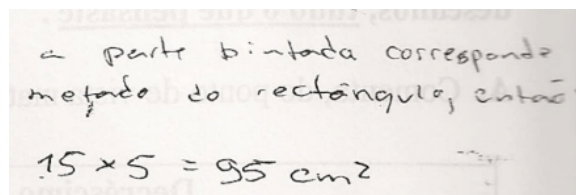 a parte pintada corresponde
metade do rectângulo, então
15 × 5 = 95 cm2